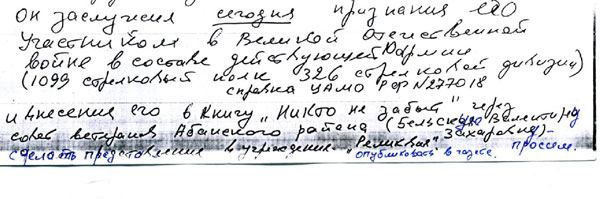 Он заслужил сегодня признания его
Участником в Великой Отечественной
войне в составе действующей Армии
(1099 стрелковый полк 326 стрелковой дивизии)
справка ЦАМО РФ №277018
и внесения его в книгу "Никто не забыт" через
совет ветеранов Абанского района (Бельскую Валентину
Захаровну) -
сделать представление в учреждение "Реликвия" опубликовать в газете. просим.